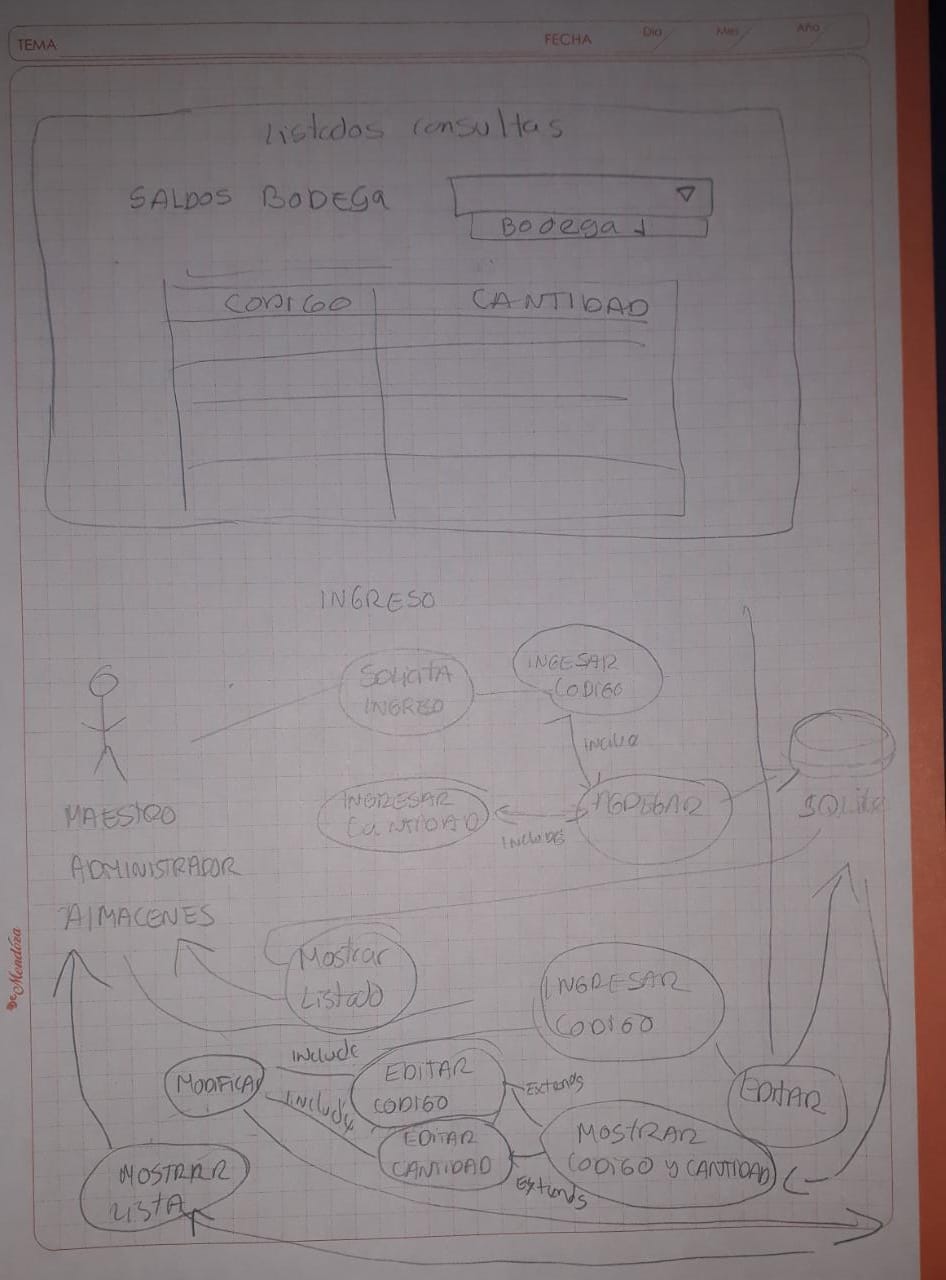 TEMA
FECHA
Día
Mes
Año
Listados consultas
SALDOS BODEGA
Bodega 1
CODIGO
CANTIDAD
INGRESO
SOLICITA
INGRESO
INGESAR
CODIGO
incluo
INGRESAR
CANTIDAD
INCLUDE
AGREGAR
SQLite
MAESTRO
ADMINISTRADOR
AlMACENES
Mostrar
Listado
INGRESAR
CODIGO
MODIFICAR
INCLUDE
INCLUDE
EDITAR
CODIGO
Extends
EDITAR
EDITAR
CANTIDAD
MOSTRAR
CODIGO Y CANTIDAD
Extends
MOSTRAR
LISTA
DeMendoza